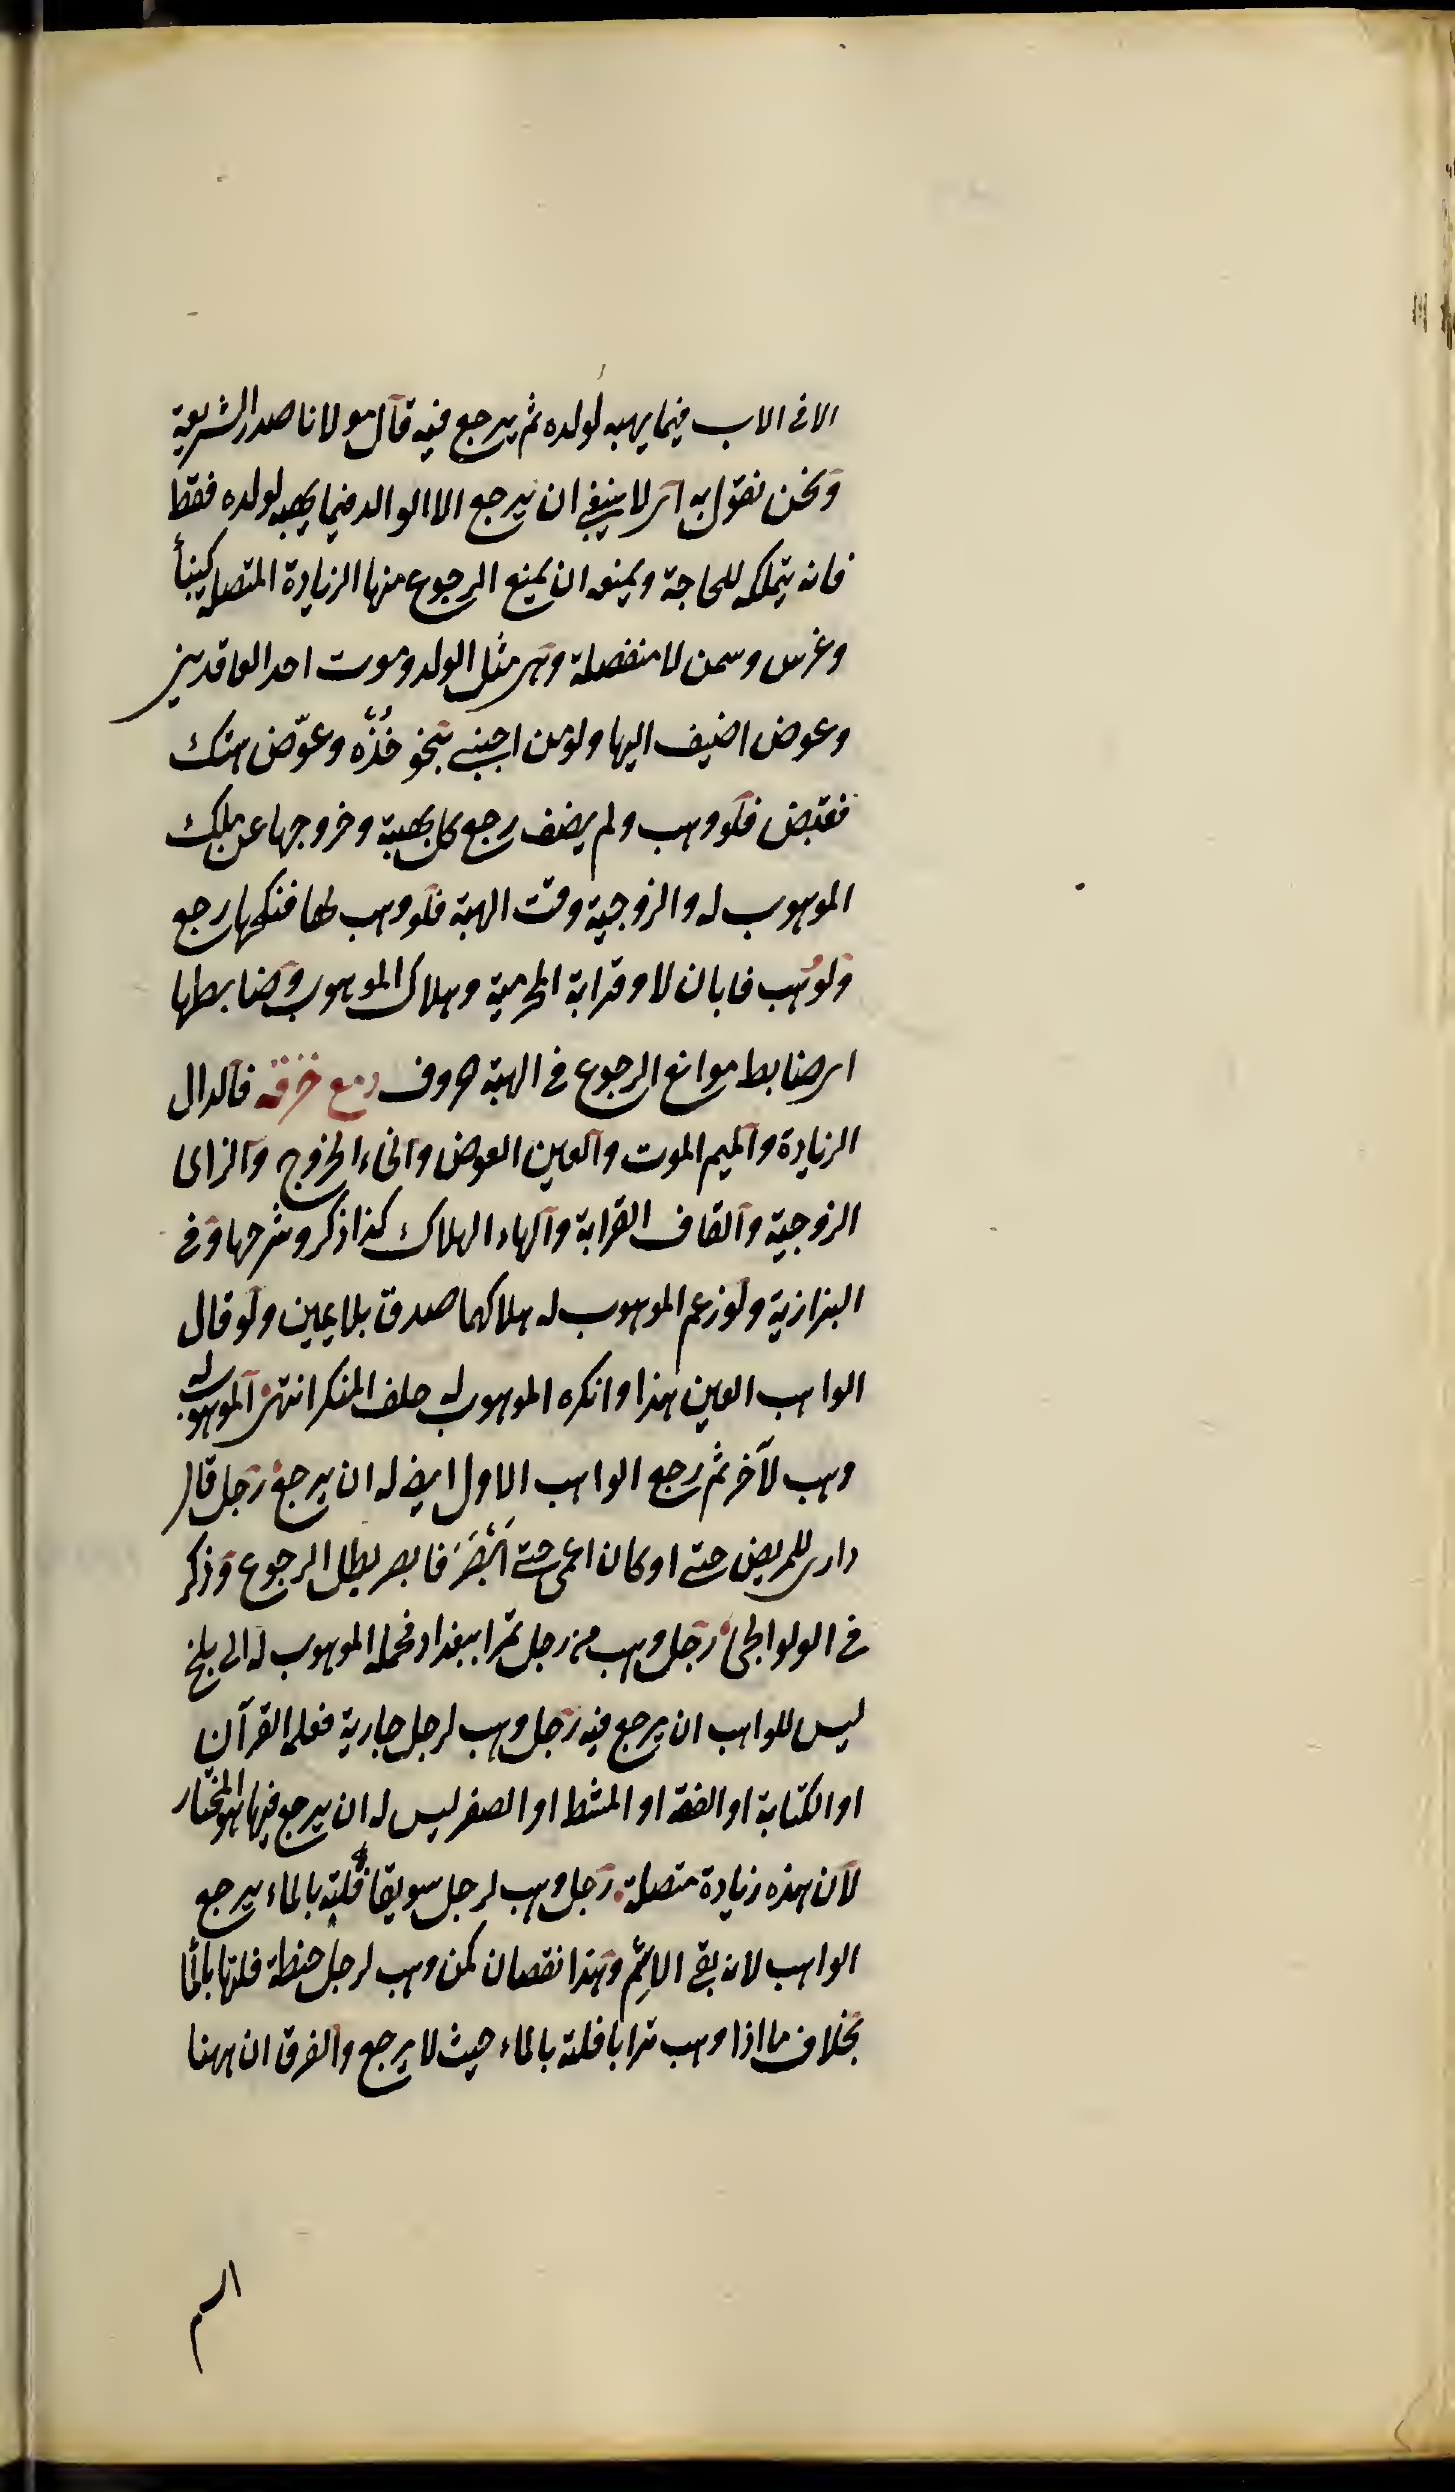 الا فى الاب فيما يهبه لولده ثم يرجع فيه قال مولانا صدر الشريعة
ونحن نقول به اى لا ينبغى ان يرجع الا الوالد فيما يهبه لولده فقط
فانه يتملكه للحاجة ويمنع ان يمنع الرجوع منها الزيادة المتصلة كبنأ
وغرس وسمن لا منفصلة وهى مثل الولد وموت احد العاقدين
وعوض اضيف اليها ولو من اجنبى بنحو خُذْه وعوّض هبتك
فقبض فلو وهب ولم يضف رجع كل بهبته وخروجها عن ملك
الموهوب له والزوجية وقت الهبة فلو وهب لها فنكحها رجع
ولو وهب فابان لا وقرابة المحرمية وهلاك الموهوب وضابطها
اى ضابط موانع الرجوع فى الهبة حروف دمع خزقه فالدال
الزيادة والميم الموت والعين العوض والخاء الخروج والزاى
الزوجية والقاف القرابة والهاء الهلاك كذا ذكر وشرحها وفى
البزازية ولو زعم الموهوب له هلاكها صدق بلا يمين ولو قال
الواهب العين هذا وانكره الموهوب له حلف المنكر انتهى الموهوب له
وهب لآخر ثم رجع الواهب الاول ايضا له ان يرجع رجل قال
دارى للمريض حتى او كان اعمى حتى ابْصَرَ فابصر بطل الرجوع وذكر
فى الولوالجى رجل وهب من رجل تمرا ببغداد فحمله الموهوب له الى بلخ
ليس للواهب ان يرجع فيه رجل وهب لرجل جارية فعلمها القرآن
او الكتابة او الفقه او المشط او الصفر ليس له ان يرجع فيها هو المختار
لان هذه زيادة متصلة رجل وهب لرجل سويقا فلته بالماء يرجع
الواهب لانه بقى الاسم وهذا نقصان كمن وهب لرجل حنطة فلتها بالما
بخلاف ما اذا وهب ترابا فلته بالماء حيث لا يرجع والفرق ان ههنا
اسم